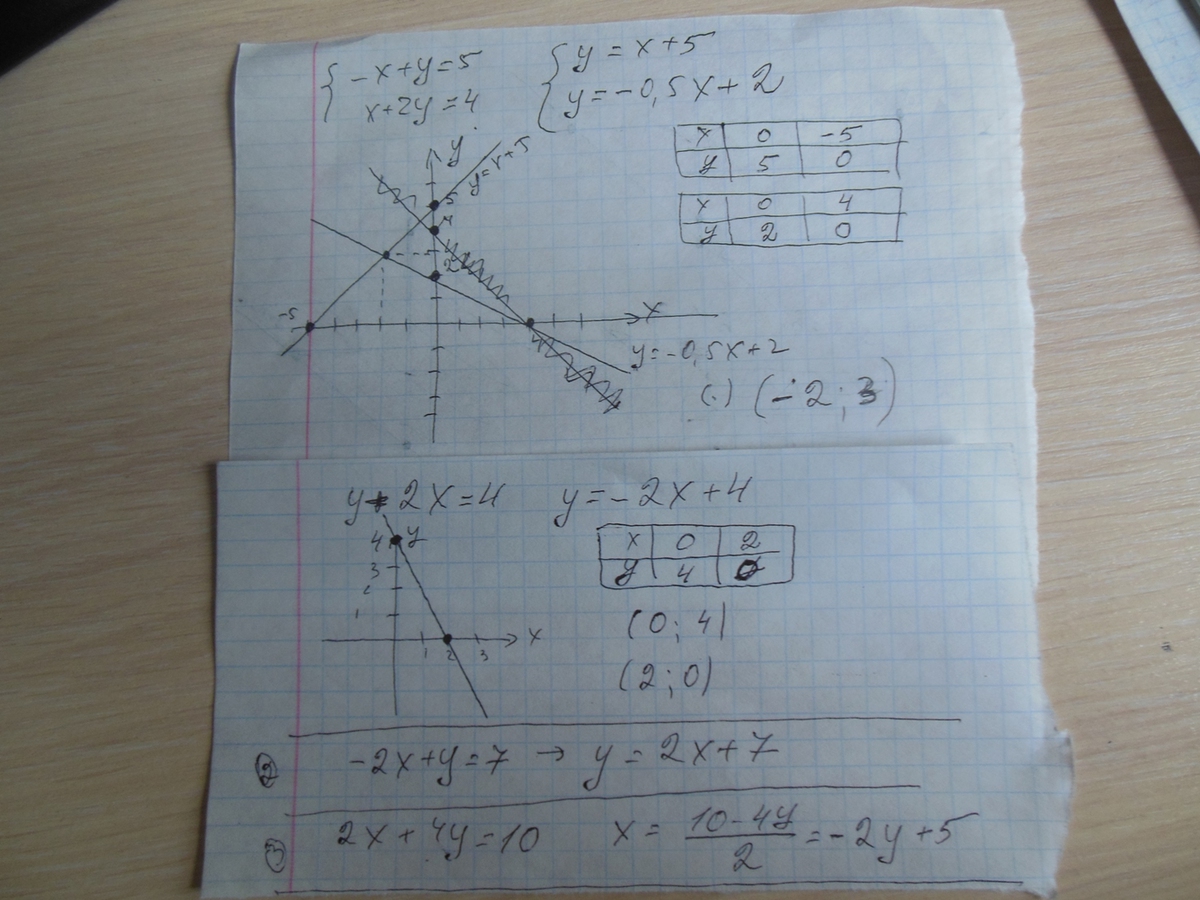 { -x+y=5 { y=x+5
x+2y=4 y=-0,5x+2
x 0 -5
y 5 0
x 0 4
y 2 0
y
y=x+5
5
4
2
-5
x
4
y=-0,5x+2
(.) (-2; 3)
y+2x=4 y=-2x+4
x 0 2
y 4 0
4 y
3
2
1
x
1 2 3
(0; 4)
(2; 0)
② -2x+y=7 → y=2x+7
③ 2x+4y=10 x= (10-4y)/2 =-2y+5